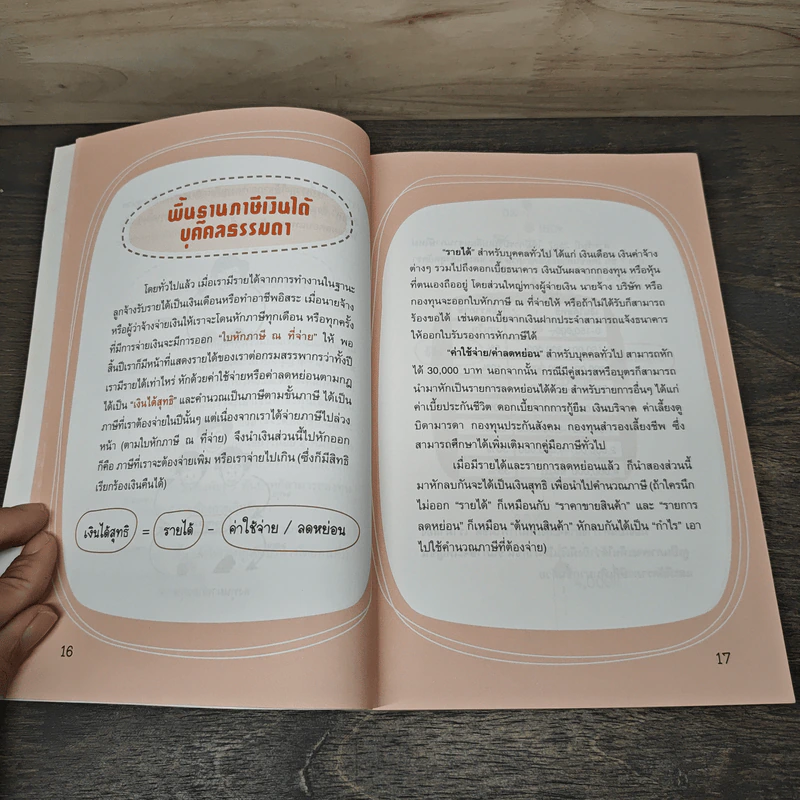 พื้นฐานภาษีเงินได้
บุคคลธรรมดา
โดยทั่วไปแล้ว เมื่อเรามีรายได้จากการทำงานในฐานะ
ลูกจ้างรับรายได้เป็นเงินเดือนหรือทำอาชีพอิสระ เมื่อนายจ้าง
หรือผู้ว่าจ้างจ่ายเงินให้เราจะโดนหักภาษีทุกเดือน หรือทุกครั้ง
ที่มีการจ่ายเงินจะมีการออก "ใบหักภาษี ณ ที่จ่าย" ให้ พอ
สิ้นปีเราก็มีหน้าที่แสดงรายได้ของเราต่อกรมสรรพากรว่าทั้งปี
เรามีรายได้เท่าไหร่ หักด้วยค่าใช้จ่ายหรือค่าลดหย่อนตามกฎ
ได้เป็น "เงินได้สุทธิ" และคำนวณเป็นภาษีตามขั้นภาษี ได้เป็น
ภาษีที่เราต้องจ่ายในปีนั้นๆ แต่เนื่องจากเราได้จ่ายภาษีไปล่วง
หน้า (ตามใบหักภาษี ณ ที่จ่าย) จึงนำเงินส่วนนี้ไปหักออก
ก็คือ ภาษีที่เราจะต้องจ่ายเพิ่ม หรือเราจ่ายไปเกิน (ซึ่งก็มีสิทธิ
เรียกร้องเงินคืนได้)
เงินได้สุทธิ = รายได้ - ค่าใช้จ่าย / ลดหย่อน
16
"รายได้" สำหรับบุคคลทั่วไป ได้แก่ เงินเดือน เงินค่าจ้าง
ต่างๆ รวมไปถึงดอกเบี้ยธนาคาร เงินปันผลจากกองทุน หรือหุ้น
ที่ตนเองถืออยู่ โดยส่วนใหญ่ทางผู้จ่ายเงิน นายจ้าง บริษัท หรือ
กองทุนจะออกใบหักภาษี ณ ที่จ่ายให้ หรือถ้าไม่ได้รับก็สามารถ
ร้องขอได้ เช่นดอกเบี้ยจากเงินฝากประจำสามารถแจ้งธนาคาร
ให้ออกใบรับรองการหักภาษีได้
"ค่าใช้จ่าย/ค่าลดหย่อน" สำหรับบุคคลทั่วไป สามารถหัก
ได้ 30,000 บาท นอกจากนั้น กรณีมีคู่สมรสหรือบุตรก็สามารถ
นำมาหักเป็นรายการลดหย่อนได้ด้วย สำหรับรายการอื่นๆ ได้แก่
ค่าเบี้ยประกันชีวิต ดอกเบี้ยจากการกู้ยืม เงินบริจาค ค่าเลี้ยงดู
บิดามารดา กองทุนประกันสังคม กองทุนสำรองเลี้ยงชีพ ซึ่ง
สามารถศึกษาได้เพิ่มเติมจากคู่มือภาษีทั่วไป
เมื่อมีรายได้และรายการลดหย่อนแล้ว ก็นำสองส่วนนี้
มาหักลบกันจะได้เป็นเงินสุทธิ เพื่อนำไปคำนวณภาษี (ถ้าใครนึก
ไม่ออก "รายได้" ก็เหมือนกับ "ราคาขายสินค้า" และ "รายการ
ลดหย่อน" ก็เหมือน "ต้นทุนสินค้า" หักลบกันได้เป็น "กำไร" เอา
ไปใช้คำนวณภาษีที่ต้องจ่าย)
17